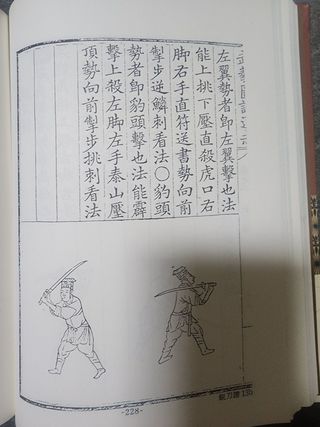 左翼勢者卽左翼擊也法
能上挑下壓直殺虎口右
脚右手直符送書勢向前
掣步逆鱗刺看法○豹頭
勢者卽豹頭擊也法能霹
擊上殺左脚左手泰山壓
頂勢向前掣步挑刺看法
-228-